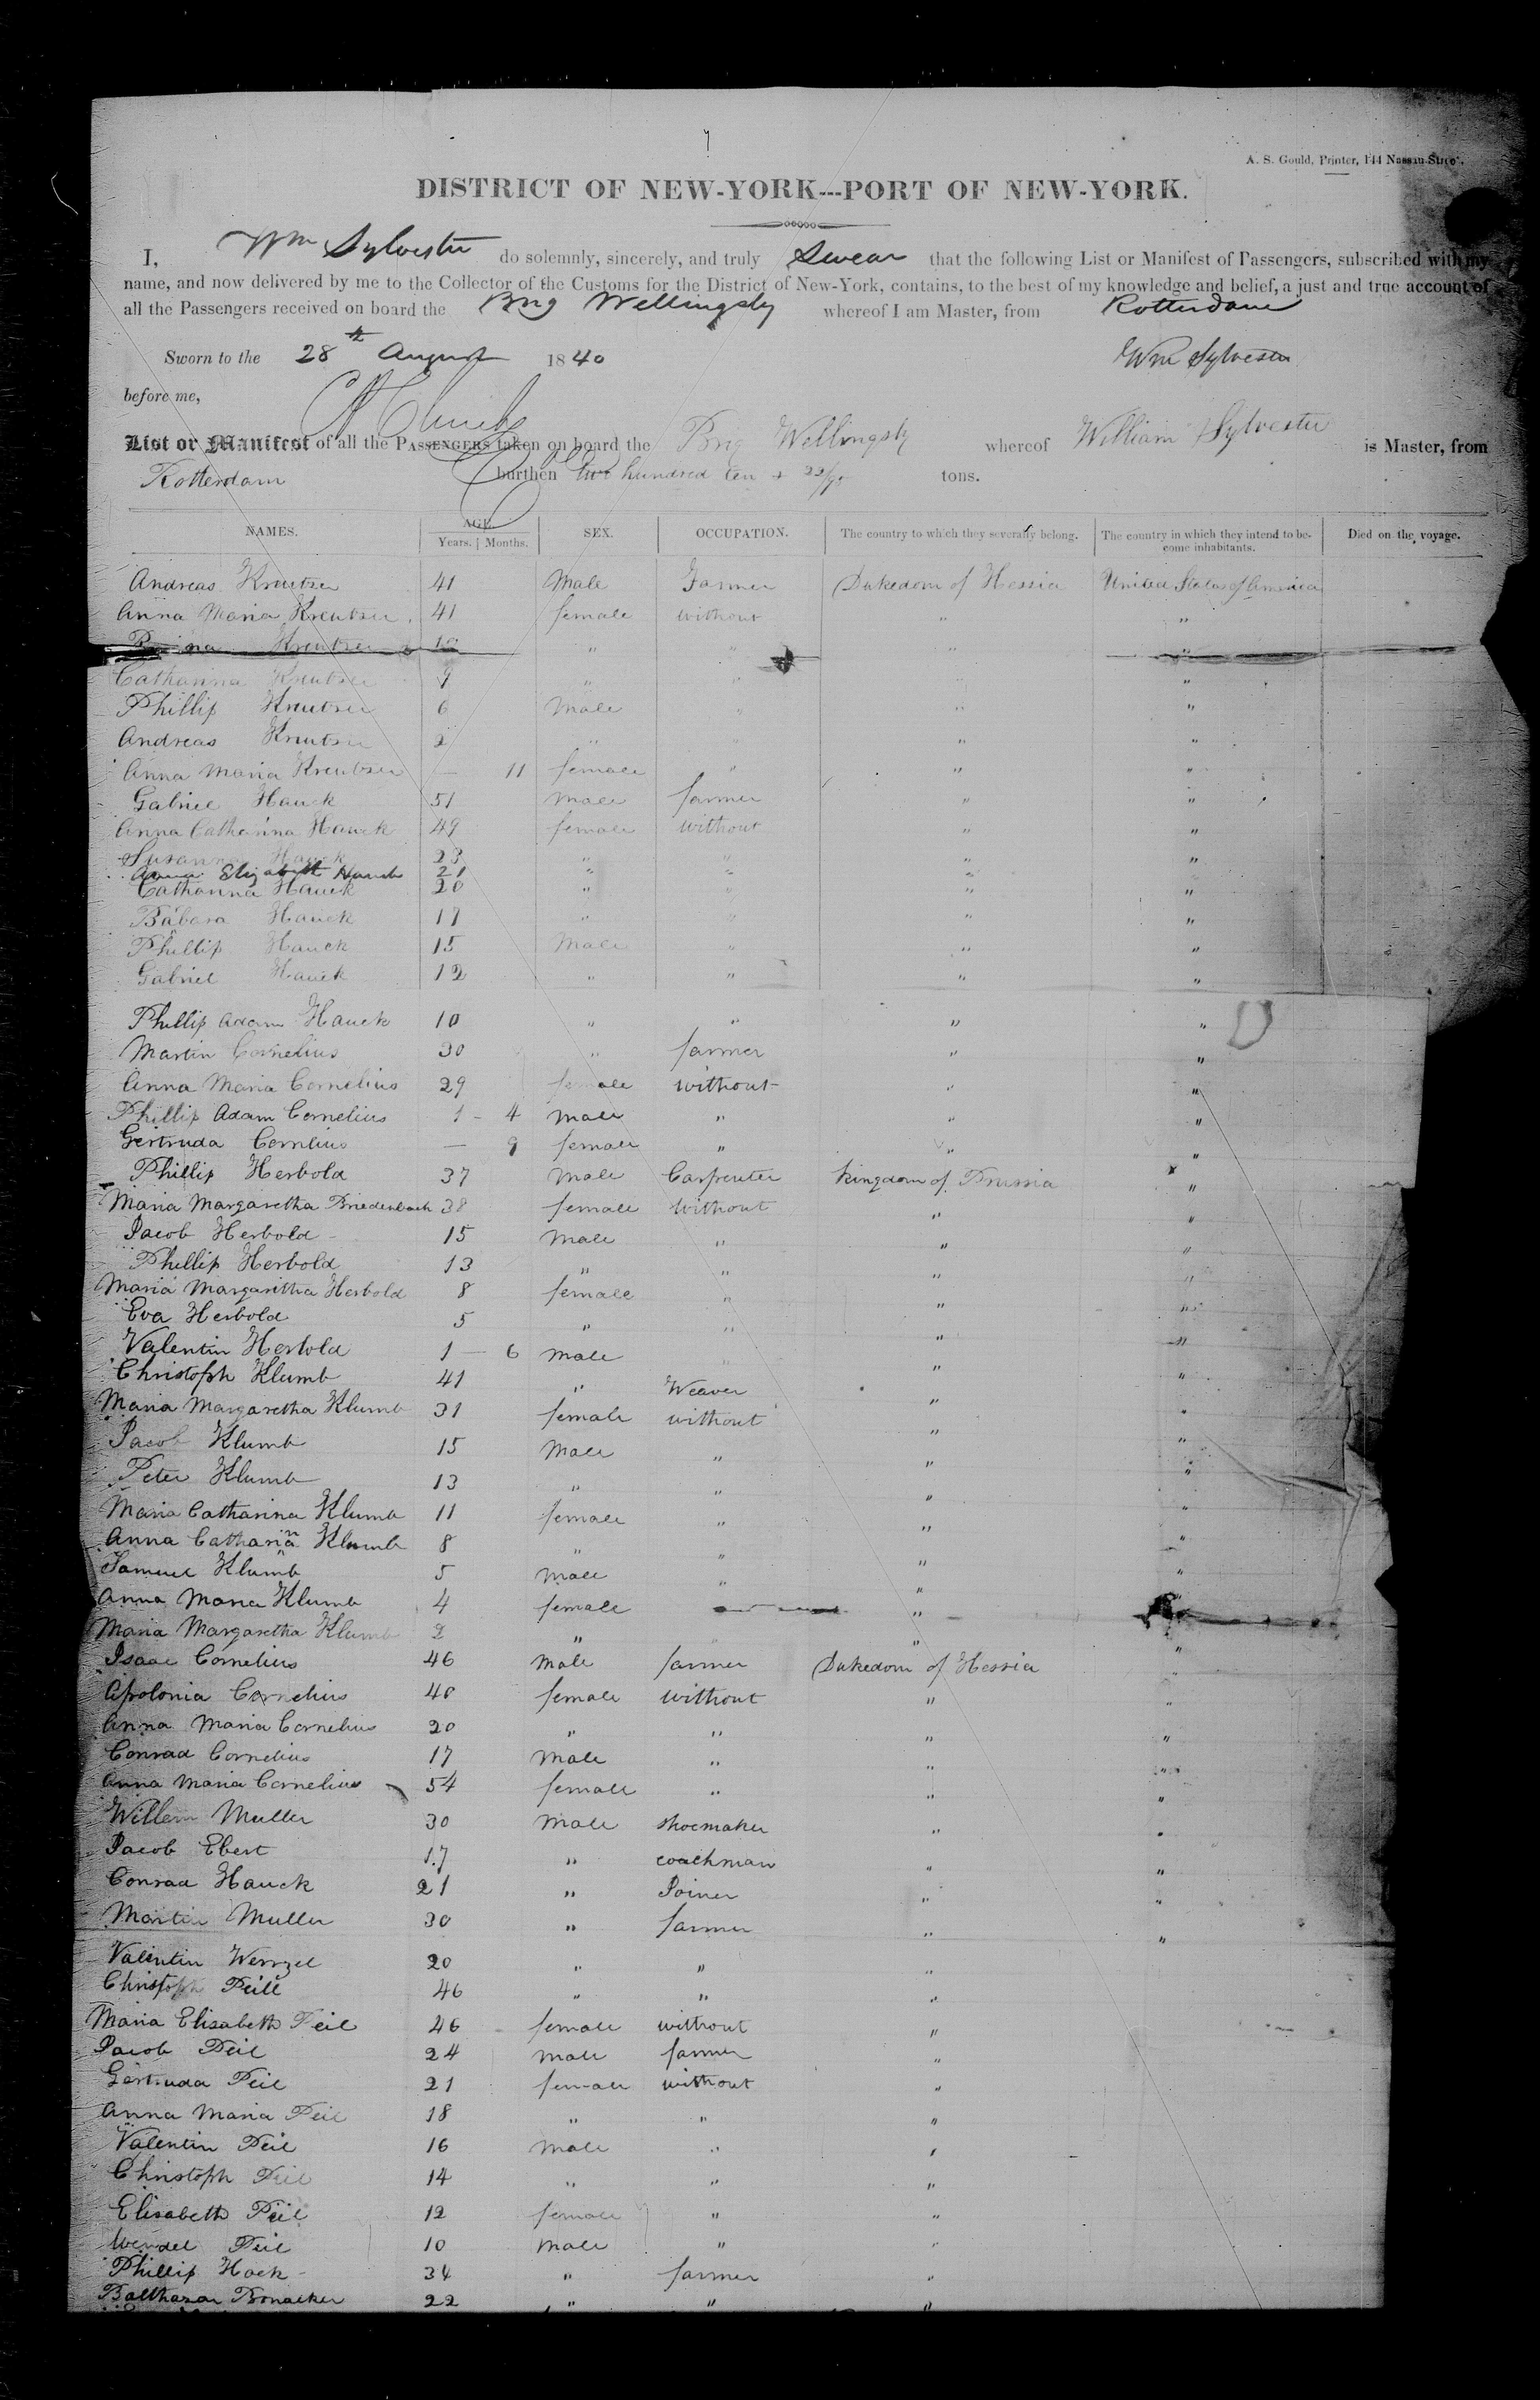 A. S. Gould, Printer, 144 Nassau Street.
DISTRICT OF NEW-YORK---PORT OF NEW-YORK.
I, Wm Sylvester do solemnly, sincerely, and truly Swear that the following List or Manifest of Passengers, subscribed with my
name, and now delivered by me to the Collector of the Customs for the District of New-York, contains, to the best of my knowledge and belief, a just and true account of
all the Passengers received on board the Brig Wellingsly whereof I am Master, from Rotterdam
Sworn to the 28th August 1840 Wm Sylvester
before me,
List or Manifest of all the PASSENGERS taken on board the Brig Wellingsly whereof William Sylvester is Master, from
Rotterdam burthen two hundred ten & tons.
NAMES. AGE. Years. Months. SEX. OCCUPATION. The country to which they severally belong. The country in which they intend to become inhabitants. Died on the voyage.
Andreas Kreutzer 41 Male Farmer Dukedom of Hessia United States of America
Anna Maria Kreutzer 41 female without " "
Kreutzer " " " "
Catharina Kreutzer 9 " " "
Phillip Kreutzer 6 Male " " "
Andreas Kreutzer 2 " " " "
Anna Maria Kreutzer — 11 female " " "
Gabriel Hauck 51 Male farmer " "
Anna Catharina Hauck 49 female without " "
Susanna Hauck 23 " " " "
Anna Elizabeth Hauck 21 " " "
Catharina Hauck 20 " " " "
Babara Hauck 17 " " " "
Phillip Hauck 15 Male " " "
Gabriel Hauck 12 " " " "
Phillip Adam Hauck 10 " " " "
Martin Cornelius 30 " farmer " "
Anna Maria Cornelius 29 female without " "
Phillip Adam Cornelius 1 - 4 Male " " "
Gertruda Cornelius — 9 female " " "
Phillip Herbold 37 Male Carpenter Kingdom of Prussia "
Maria Margaretha Briedenbach 38 female without " "
Jacob Herbold 15 Male " " "
Phillip Herbold 13 " " " "
Maria Margaritha Herbold 8 female " " "
Eva Herbold 5 " " " "
Valentin Herbold 1 — 6 Male " " "
Christoph Klumb 41 " Weaver " "
Maria Margaretha Klumb 31 female without " "
Jacob Klumb 15 Male " " "
Peter Klumb 13 " " " "
Maria Catharina Klumb 11 female " " "
Anna Catharina Klumb 8 " " " "
Samuel Klumb 5 Male " " "
Anna Maria Klumb 4 female " "
Maria Margaretha Klumb 2 " " "
Isaac Cornelius 46 Male farmer Dukedom of Hessia "
Apolonia Cornelius 40 female without " "
Anna Maria Cornelius 20 " " " "
Conrad Cornelius 17 Male " " "
Anna Maria Cornelius 54 female " " "
Willem Muller 30 Male shoemaker " "
Jacob Ebert 17 " coachman " "
Conrad Hauck 21 " Joiner " "
Martin Muller 30 " farmer " "
Valentin Wenzel 20 " " "
Christoph Peil 46 " " "
Maria Elisabeth Peil 46 female without "
Jacob Peil 24 Male farmer "
Gertruda Peil 21 female without "
Anna Maria Peil 18 " " "
Valentin Peil 16 Male " "
Christoph Peil 14 " " "
Elisabeth Peil 12 female " "
Wendel Peil 10 Male " "
Phillip Hock 34 " farmer "
Balthasar Bonacker 22 " " "